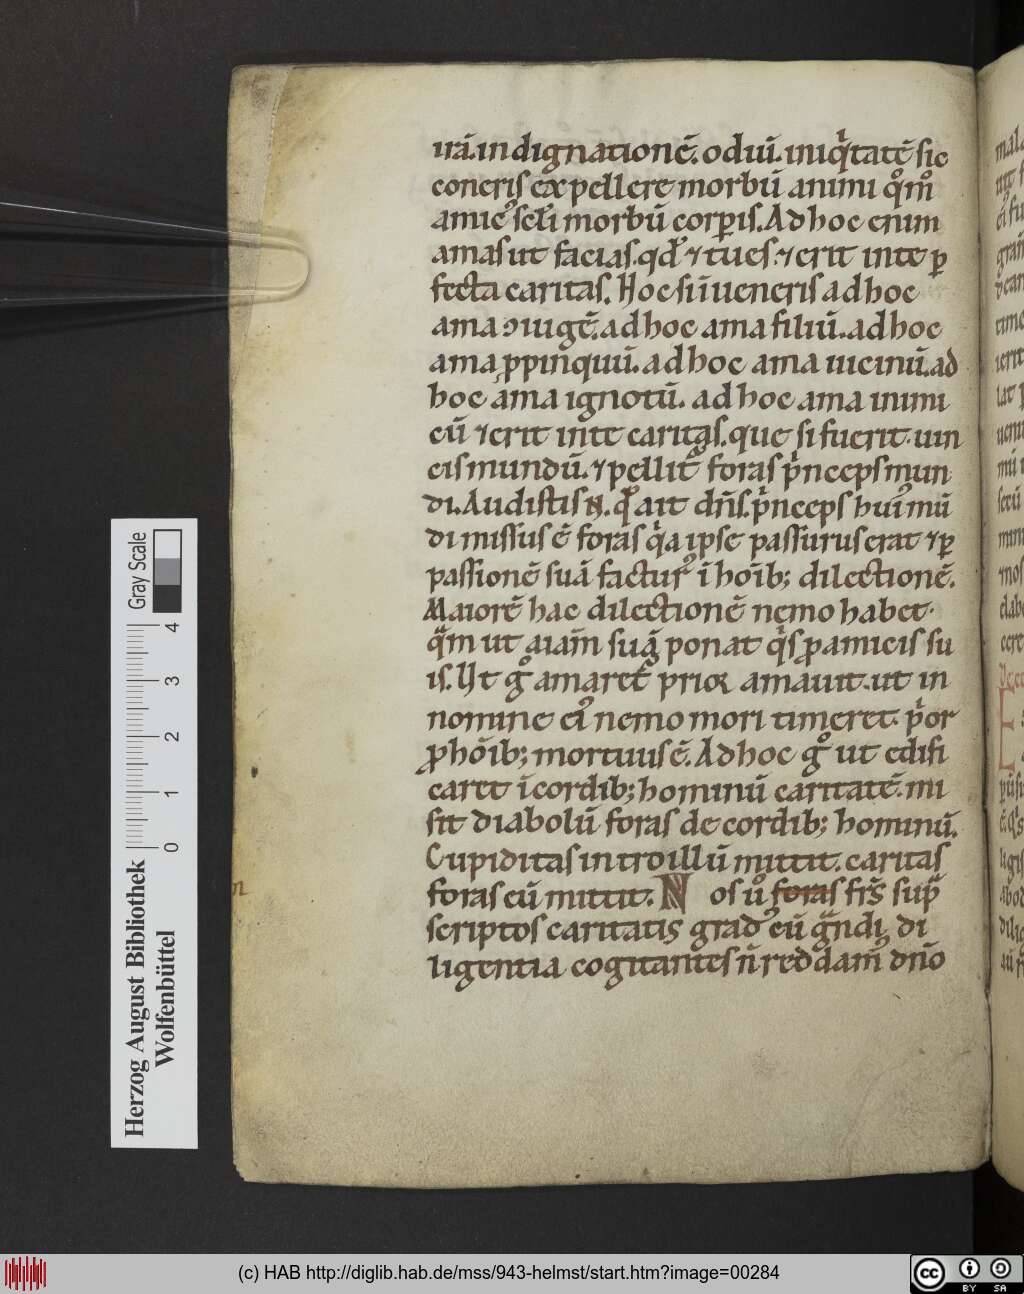 uā. indignationē. odiū. iniq̇tatē sic
coneris expellere morbū animi qͦmͦ
amic᾿ seƚi morbū corꝑis. Ad hoc enim
amas ut facias. qđ ⁊ tu es. ⁊ erit in te ꝑ
fecta caritas. Hoc si īueneris ad hoc
ama ↄiugē. ad hoc ama filiū. ad hoc
ama ꝓpinquū. ad hoc ama uicinū. ad
hoc ama ignotū. ad hoc ama inimi
cū ⁊ erit in te caritas. que si fuerit. uin
cis mundū. ⁊ pellit᾿ foras pͥnceps mun
di. Audistis N̄. qͣ ait dn̄s. pͥnceps hui᾿ mū
di missus ē foras qͥa ipse passurus erat ⁊ ꝑ
passionē suā factur᾿ ī hōib; dilectionē.
Maiorē hac dilectionē nemo habet.
qͣ̄m ut aīam̄ suā ponat qͥs ꝓ amicis su
is. Ut gͦ amaret᾿ prior amauit. ut in
nomine ei᾿ nemo mori timeret. pͥor
ꝓ hōib; mortuus ē. Ad hoc gͦ ut edifi
caret ī cordib; hominū caritatē. mi
sit diabolū foras de cordib; hominū.
Cupiditas intro illū mittit. caritas
foras eū mittit. N os ū foras fr̄s sup̄
scriptos caritatis grad᾿ eūgͣndi. di
ligentia cogitantes n̄ reddam᾿ dn̄o
n
Herzog August Bibliothek
Wolfenbüttel
0 1 2 3 4
Gray Scale
(c) HAB http://diglib.hab.de/mss/943-helmst/start.htm?image=00284
cc BY SA